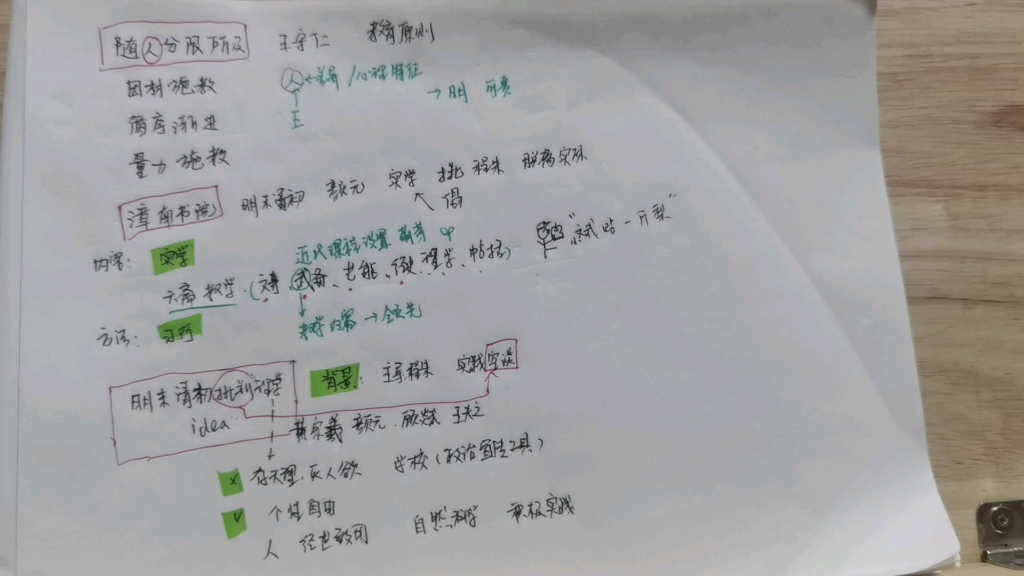 随人分限所及 王守仁 教育原则
因材施教 人←差异/心理特征 →明 可贵
循序渐进 王
量力施教
漳南书院 明末清初 颜元 实学 批 程朱 脱离实际
倡
近代课程设置 萌芽
内容: 实学
六斋教学.(文事、武备、艺能、经史、理学、帖括) "试帖一方梨"
教学内容 → 领先
方法: 习行
明末清初批判理学 背景: 主导程朱 实践空谈
idea 黄宗羲 颜元.顾炎 王夫之
× 存天理,灭人欲 学校(政治 工具)
√ 个性自由
人 经世致用 自然科学 重视实践